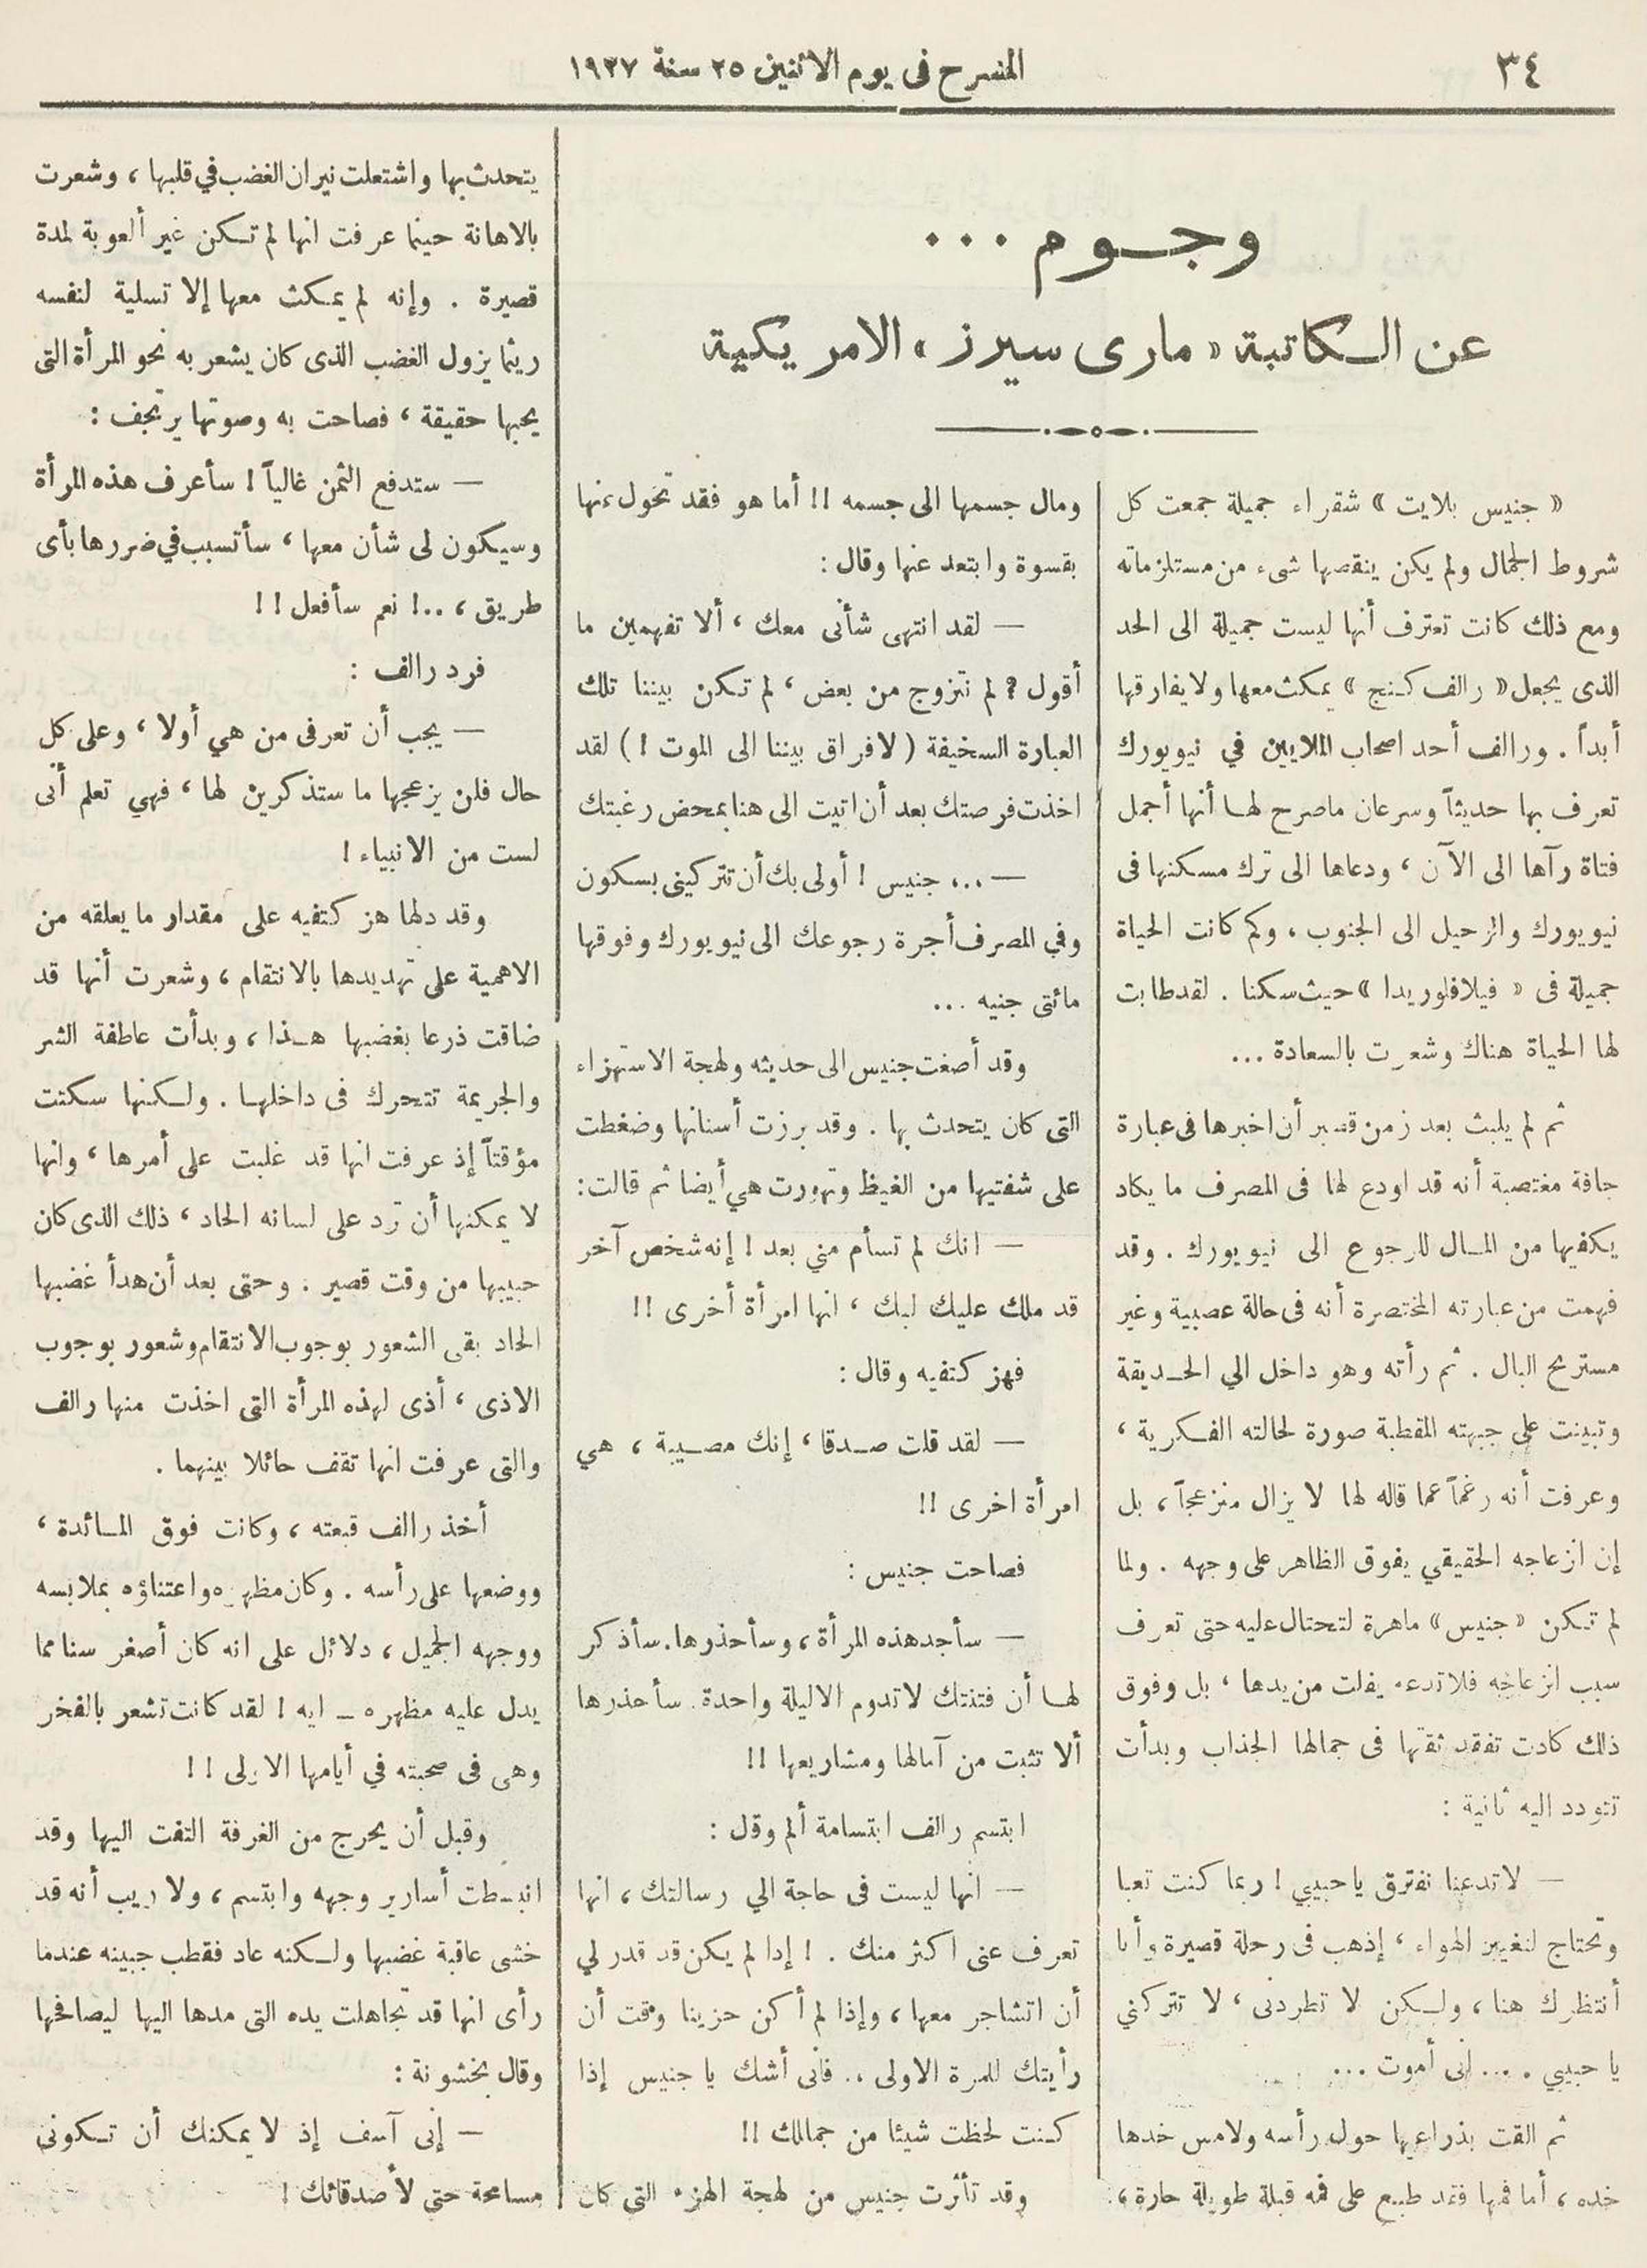 ٣٤
المسرح فى يوم الاثنين ٢٥ سنة ١٩٢٧
وجـوم ...
عن الـكاتبة « مارى سيرز » الامريكية
« جنيس بلايت » شقراء جميلة جمعت كل
شروط الجمال ولم يكن ينقصها شىء من مستلزماته
ومع ذلك كانت تعترف أنها ليست جميلة الى الحد
الذى يجعل « رالف كـنج » يمكث معها ولا يفارقها
أبداً . ورالف أحد اصحاب الملايين في نيويورك
تعرف بها حديثاً وسرعان ماصرح لهـا أنها أجمل
فتاة رآها الى الآن ، ودعاها الى ترك مسكنها فى
نيويورك والرحيل الى الجنوب ، وكم كانت الحياة
جميلة فى « فيلافلوريدا » حيث سكنا . لقد طابت
لها الحياة هناك وشعرت بالسعادة ...
ثم لم يلبث بعد زمن قصير أن اخبرها فى عبارة
جافة مغتصبة أنه قد اودع لها فى المصرف ما يكاد
يكفيها من المـال للرجوع الى نيويورك . وقد
فهمت من عبارته المختصرة أنه فى حالة عصبية وغير
مستريح البال . ثم رأته وهو داخل الي الحـديقة
وتبينت على جبهته المقطبة صورة لحالته الفـكرية ،
وعرفت أنه رغماً عما قاله لها لا يزال منزعجاً ، بل
إن انزعاجه الحقيقي يفوق الظاهر على وجهه . ولما
لم تـكن « جنيس » ماهرة لتحتال عليه حتى تعرف
سبب انزعاجه فلا تدعه يفلت من يدها ، بل وفوق
ذلك كادت تفقد ثقتها فى جمالها الجذاب وبدأت
تتودد اليه ثانية :
— لا تدعنا نفترق يا حبيبي ! ربما كنت تعبا
وتحتاج لتغيير الهواء ، إذهب فى رحلة قصيرة وأنا
أنتظرك هنا ، ولـكن لا تطردنى ، لا تتركني
يا حبيبي . ... إنى أموت ...
ثم القت بذراعيها حول رأسه ولامس خدها
خده ، أما فمها فقد طبع على فمه قبلة طويلة حارة ،
ومال جسمها الى جسمه !! أما هو فقد تحول عنها
بقسوة وابتعد عنها وقال :
— لقد انتهى شأنى معك ، ألا تفهمين ما
أقول ؟ لم نتزوج من بعض ، لم تـكن بيننا تلك
العبارة السخيفة ( لا فراق بيننا الى الموت ! ) لقد
اخذت فرصتك بعد أن اتيت الى هنا بمحض رغبتك
— ..، جنيس ! أولى بك أن تتركينى بسكون
وفي المصرف أجرة رجوعك الى نيويورك وفوقها
مائتى جنيه ...
وقد أصغت جنيس الى حديثه ولهجة الاستهزاء
التى كان يتحدث بها . وقد برزت أسنانها وضغطت
على شفتيها من الغيظ وتهورت هي أيضا ثم قالت :
— انك لم تسأم مني بعد ! إنه شخص آخر
قد ملك عليك لبك ، انها امرأة أخرى !!
فهز كتفيه وقال :
— لقد قلت صـدقا ، إنك مصـيبة ، هي
امرأة اخرى !!
فصاحت جنيس :
— سأجد هذه المرأة ، وسأحذرها . سأذكر
لهـا أن فتنتك لا تدوم الا ليلة واحدة . سأحذرها
ألا تثبت من آمالها ومشاريعها !!
ابتسم رالف ابتسامة ألم وقل :
— انها ليست فى حاجة الي رسالتك ، انها
تعرف عنى اكثر منك . ! إدا لم يكن قد قدر لي
أن اتشاجر معها ، وإذا لم أكن حزينا وقت أن
رأيتك للمرة الاولى .. فانى أشك يا جنيس إذا
كـنت لحظت شيئا من جمالك !!
وقد تأثرت جنيس من لهجة الهزء التى كان
يتحدث بها واشتعلت نيران الغضب في قلبها ، وشعرت
بالاهانة حينما عرفت انها لم تـكن غير ألعوبة لمدة
قصيرة . وإنه لم يمـكث معها إلا تسلية لنفسه
ريثما يزول الغضب الذى كان يشعر به نحو المرأة التى
يحبها حقيقة ، فصاحت به وصوتها يرتجف :
— ستدفع الثمن غالياً ! سأعرف هذه المرأة
وسيكون لى شأن معها ، سأتسبب في ضررها بأى
طريق ، ..! نعم سأفعل !!
فرد رالف :
— يجب أن تعرفى من هي أولا ، وعلى كل
حال فلن يزعجها ما ستذكرين لها ، فهي تعلم أنى
لست من الانبياء !
وقد دلها هز كتفيه على مقدار ما يعلقه من
الاهمية على تهديدها بالانتقام ، وشعرت أنها قد
ضاقت ذرعا بغضبها هـذا ، وبدأت عاطفة الشر
والجريمة تتحرك فى داخلهـا . ولـكنها سكتت
مؤقتاً إذ عرفت انها قد غلبت على أمرها ، وانها
لا يمكنها أن ترد على لسانه الحاد ، ذلك الذى كان
حبيبها من وقت قصير . وحتى بعد أن هدأ غضبها
الحاد بقى الشعور بوجوب الانتقام وشعور بوجوب
الاذى ، أذى لهذه المرأة التى اخذت منها رالف
والتى عرفت انها تقف حائلا بينهما .
أخذ رالف قبعته ، وكانت فوق المـائدة ،
ووضعها على رأسه . وكان مظهره واعتناؤه بملابسه
ووجهه الجميل ، دلائل على انه كان أصغر سنا مما
يدل عليه مظهره ــ ايه ! لقد كانت تشعر بالفخر
وهى فى صحبته في أيامها الاولى !!
وقبل أن يخرج من الغرفة التفت اليها وقد
انبسطت أسارير وجهه وابتسم ، ولا ريب أنه قد
خشى عاقبة غضبها ولـكنه عاد فقطب جبينه عندما
رأى انها قد تجاهلت يده التى مدها اليها ليصافحها
وقال بخشونة :
— إنى آسف إذ لا يمكنك أن تـكونى
مسامحة حتي لأصدقائك !